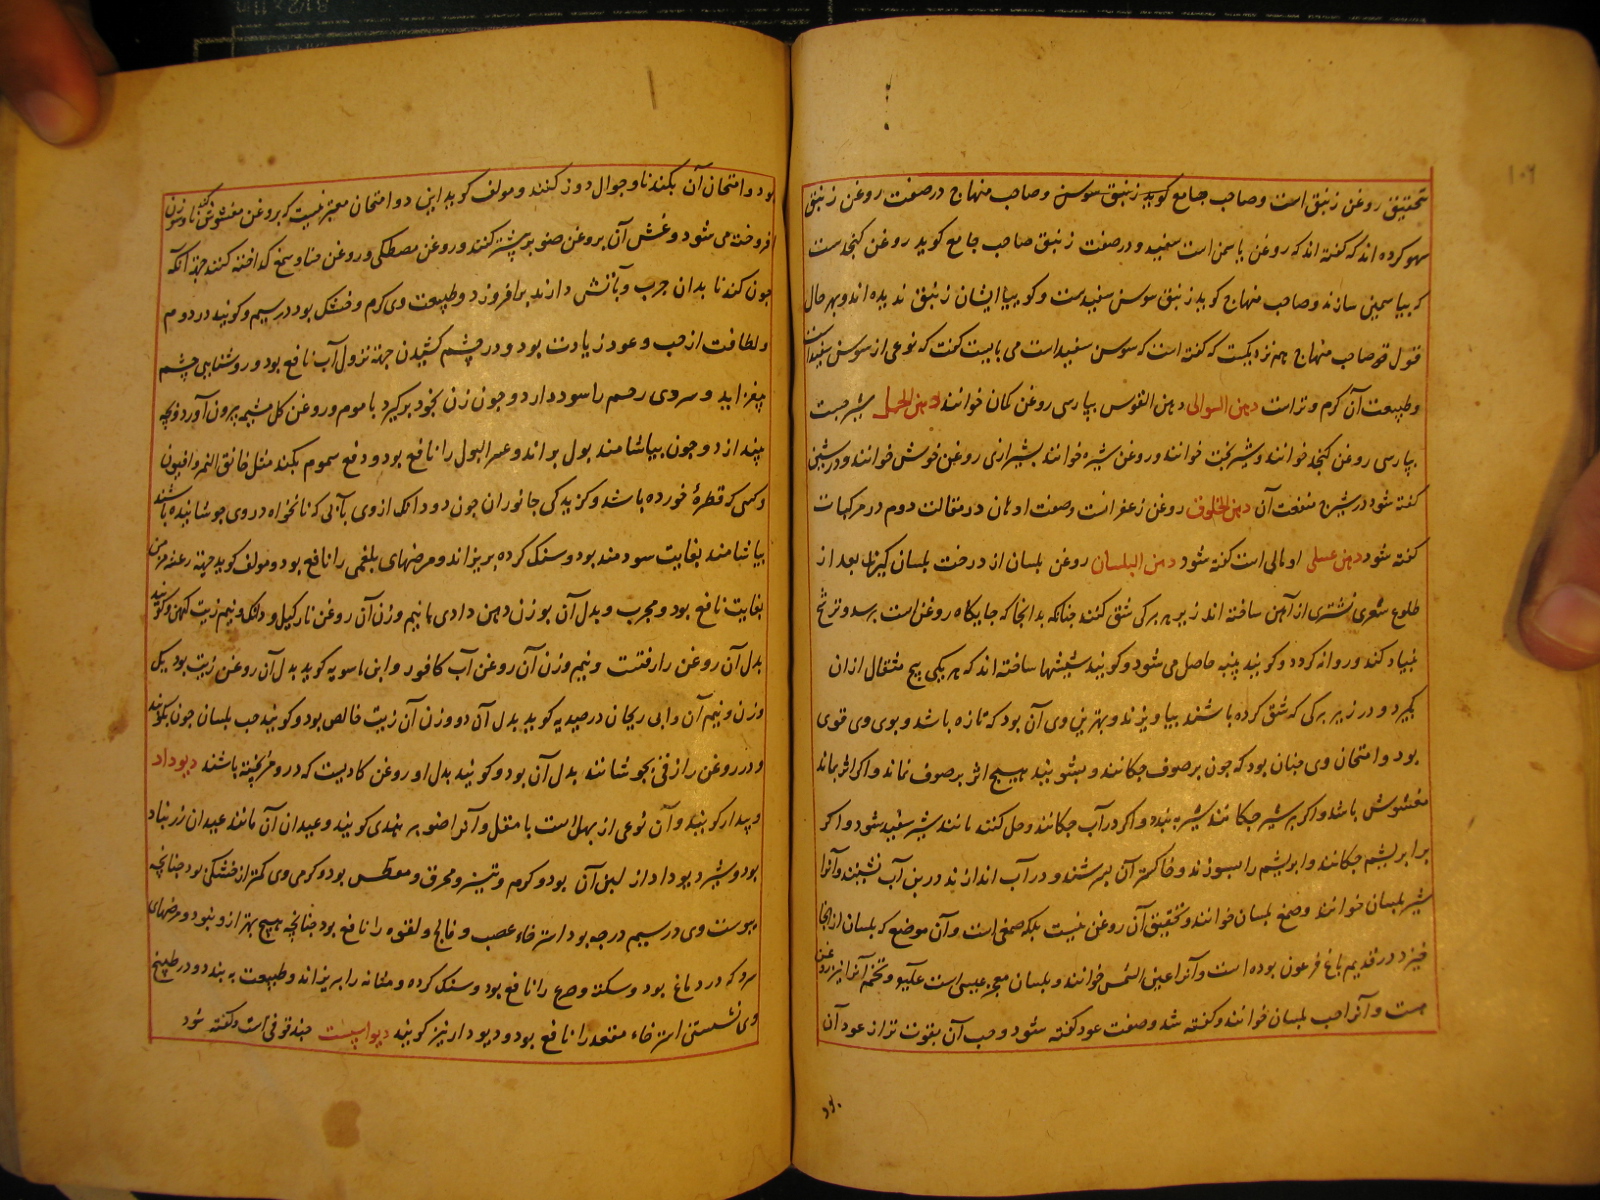 ۱۰۶
تحقیق روغن زنبق است وصاحب جامع کوید زنبق سوسن وصاحب منهاج درصفت روغن زنبق
سهو کرده اند که گفته اند که روغن یاسمن است سفید و درصفت زنبق صاحب جامع کوید روغن کنجد ست
که بیاسمین سازند وصاحب منهاج کوید زنبق سوسن سفیدست و کوییا ایشان زنبق ندیده اند و بهرحال
قول صاحب منهاج هم نزدیکست که گفته است که سوسن سفید است می بایست گفت که نوعی از سوسن سفید است
وطبیعت آن کرم وتراست دهن السوالی دهن القوس بپارسی روغن کمان خوانند دهن الحل شیرجست
بپارسی روغن کنجد خوانند وشیربخت خوانند و روغن شیره خوانند بشیرازی روغن خوش خوانند و درشین
گفته شود در شیرج منفعت آن دهن الخلوق روغن زعفرانست وصفت ادهان در مقالت دوم در مرکبات
گفته شود دهن عسلی اومالی است گفته شود دهن البلسان روغن بلسان از درخت بلسان گیرند بعد از
طلوع شعری نشتری از آهن ساخته اند زیر هر برکی شق کنند چنانکه بدانجا که جایکاه روغن است برسد و ترشح
بنیاد کند و روانه کردد و کویند پنبه حاصل می شود و کویند شیشها ساخته اند که هر یکی پنج مثقال ازان
بگیرد و در زیر برکی که شق کرده باشند بیاویزند و بهترین وی آن بود که تازه باشد و بوی وی قوی
بود و امتحان وی چنان بود که چون بر صوف چکانند و بشویند هیچ اثر بر صوف نماند و اکر اثر بماند
مغشوش باشد و اکر بر شیر چکانند شیر ببندد و اکر در آب چکانند وحل کنند مانند شیر سفید شود و اکر
بر ابریشم چکانند و ابریشم را بسوزند و خاکستر آن بسرشند و در آب اندازند در بن آب نشیند و آنرا
شیر بلسان خوانند وصمغ بلسان خوانند و تحقیق آن روغن نیست بلکه صمغی است و آن موضع که بلسان از انجا
خیزد در قدیم باغ فرعون بوده است و آنرا عین الشمس خوانند و بلسان معجزه عیسی است علیه و تخمه آنرا نیز روغن
هست و آنرا حب بلسان خوانند و گفته شد وصفت عود گفته شود و حب آن بقوت تر از عود آن
بود
بود و امتحان آن بکندنا و جوال دوز کنند و مولف کوید این دو امتحان معتبر نیست که بروغن مغشوش
افروخته می شود وغش آن بروغن صنوبر بیشتر کنند و روغن مصطکی و روغن حنا وسمغ کداخته کنند جهته آنکه
چون کندنا بدان چرب و بآتش دارند برافروزد وطبیعت وی کرم و خشک بود در سیم و کویند در دوم
ولطافت ازحب وعود زیادت بود و در چشم کشیدن جهته نزول آب نافع بود و روشنایی چشم
بیفزاید و سردی رحم را سود دارد و چون زن بخود برکیرد با موم و روغن کل مشیمه بیرون آورد و بچه
بیندازد و چون بیاشامند بول براند وعسر البول را نافع بود و دفع سموم بکند مثل خانق النمر و افیون
و کسی که قطره خورده باشد و کزیدکی جانوران چون دو دانک از وی بآبی که نانخواه در وی جوشانیده باشند
بیاشامند بغایت سودمند بود و سنک کرده بریزاند و مرضهای بلغمی را نافع بود و مولف کوید جهته رعشه مزمن
بغایت نافع بود ومجرب و بدل آن بوزن دهن دادی ما نیم وزن آن روغن نارکیل و دانک و نیم زیت کهن و کویند
بدل آن روغن را رفتست و نیم وزن آن روغن آب کافور و ابن ماسویه کوید بدل آن روغن زیت بود یکی
وزن و نیم آن و ابی ریحان درصیدیه کوید بدل آن دو وزن آن زیت خالص بود و کویند حب بلسان چون بکوبند
و در روغن رازقی بجوشانند بدل آن بود و کویند بدل او روغن کادیست که درو مریخته باشند دیوداد
و پیدار کویند و آن نوعی از بهل است یا مقل و آنرا صنوبر هندی کویند وعیدان آن مانند عیدان زرنباد
بود و شیر دیوداد از لبن آن بود و کرم و تیز ومحرق ومعطس بود و کرمی وی کمتر از خشکی بود چنانچه
یبوست وی در سیم درجه بود استرخاء عصب و فالج و لقوه را نافع بود چنانچه هیچ بهتر ازو نبود و مرضهای
سرد که در دماغ بود و سکته وصرع را نافع بود و سنک کرده و مثانه را بریزاند وطبیعت ببندد و در طبیخ
وی نشستن استرخاء مقعد را نافع بود و دیودار نیز کویند دیواسپست حندقوقی است و گفته شود